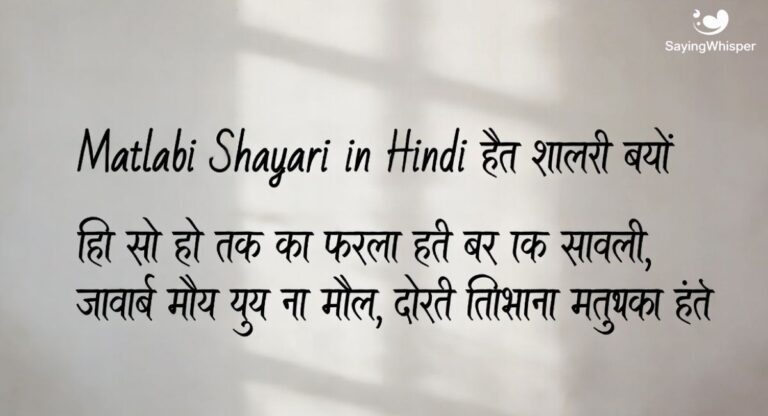 SayingWhisper
Matlabi Shayari in Hindi हैत शालरी बयों
हाि सो हो तक का फरला हती बर ाक सावली,
जावार्ब मौय युय ना मौल, दोरती तिाभाना मतुथका हंते